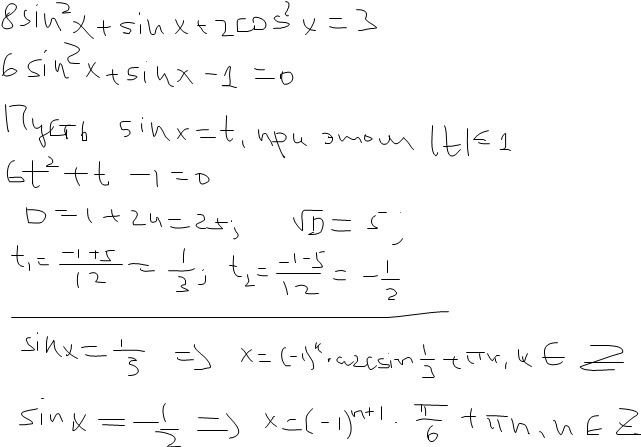 8sin²x+sinx+2cos²x=3
6sin²x+sinx-1=0
Пусть sinx=t, при этом |t|≤1
6t²+t-1=0
D=1+24=25; √D=5;
t₁=(-1+5)/12=1/3; t₂=(-1-5)/12=-1/2
sinx=1/3 => x=(-1)ᵏ·arcsin 1/3+πk, k∈Z
sinx=-1/2 => x=(-1)ⁿ⁺¹·π/6+πn, n∈Z